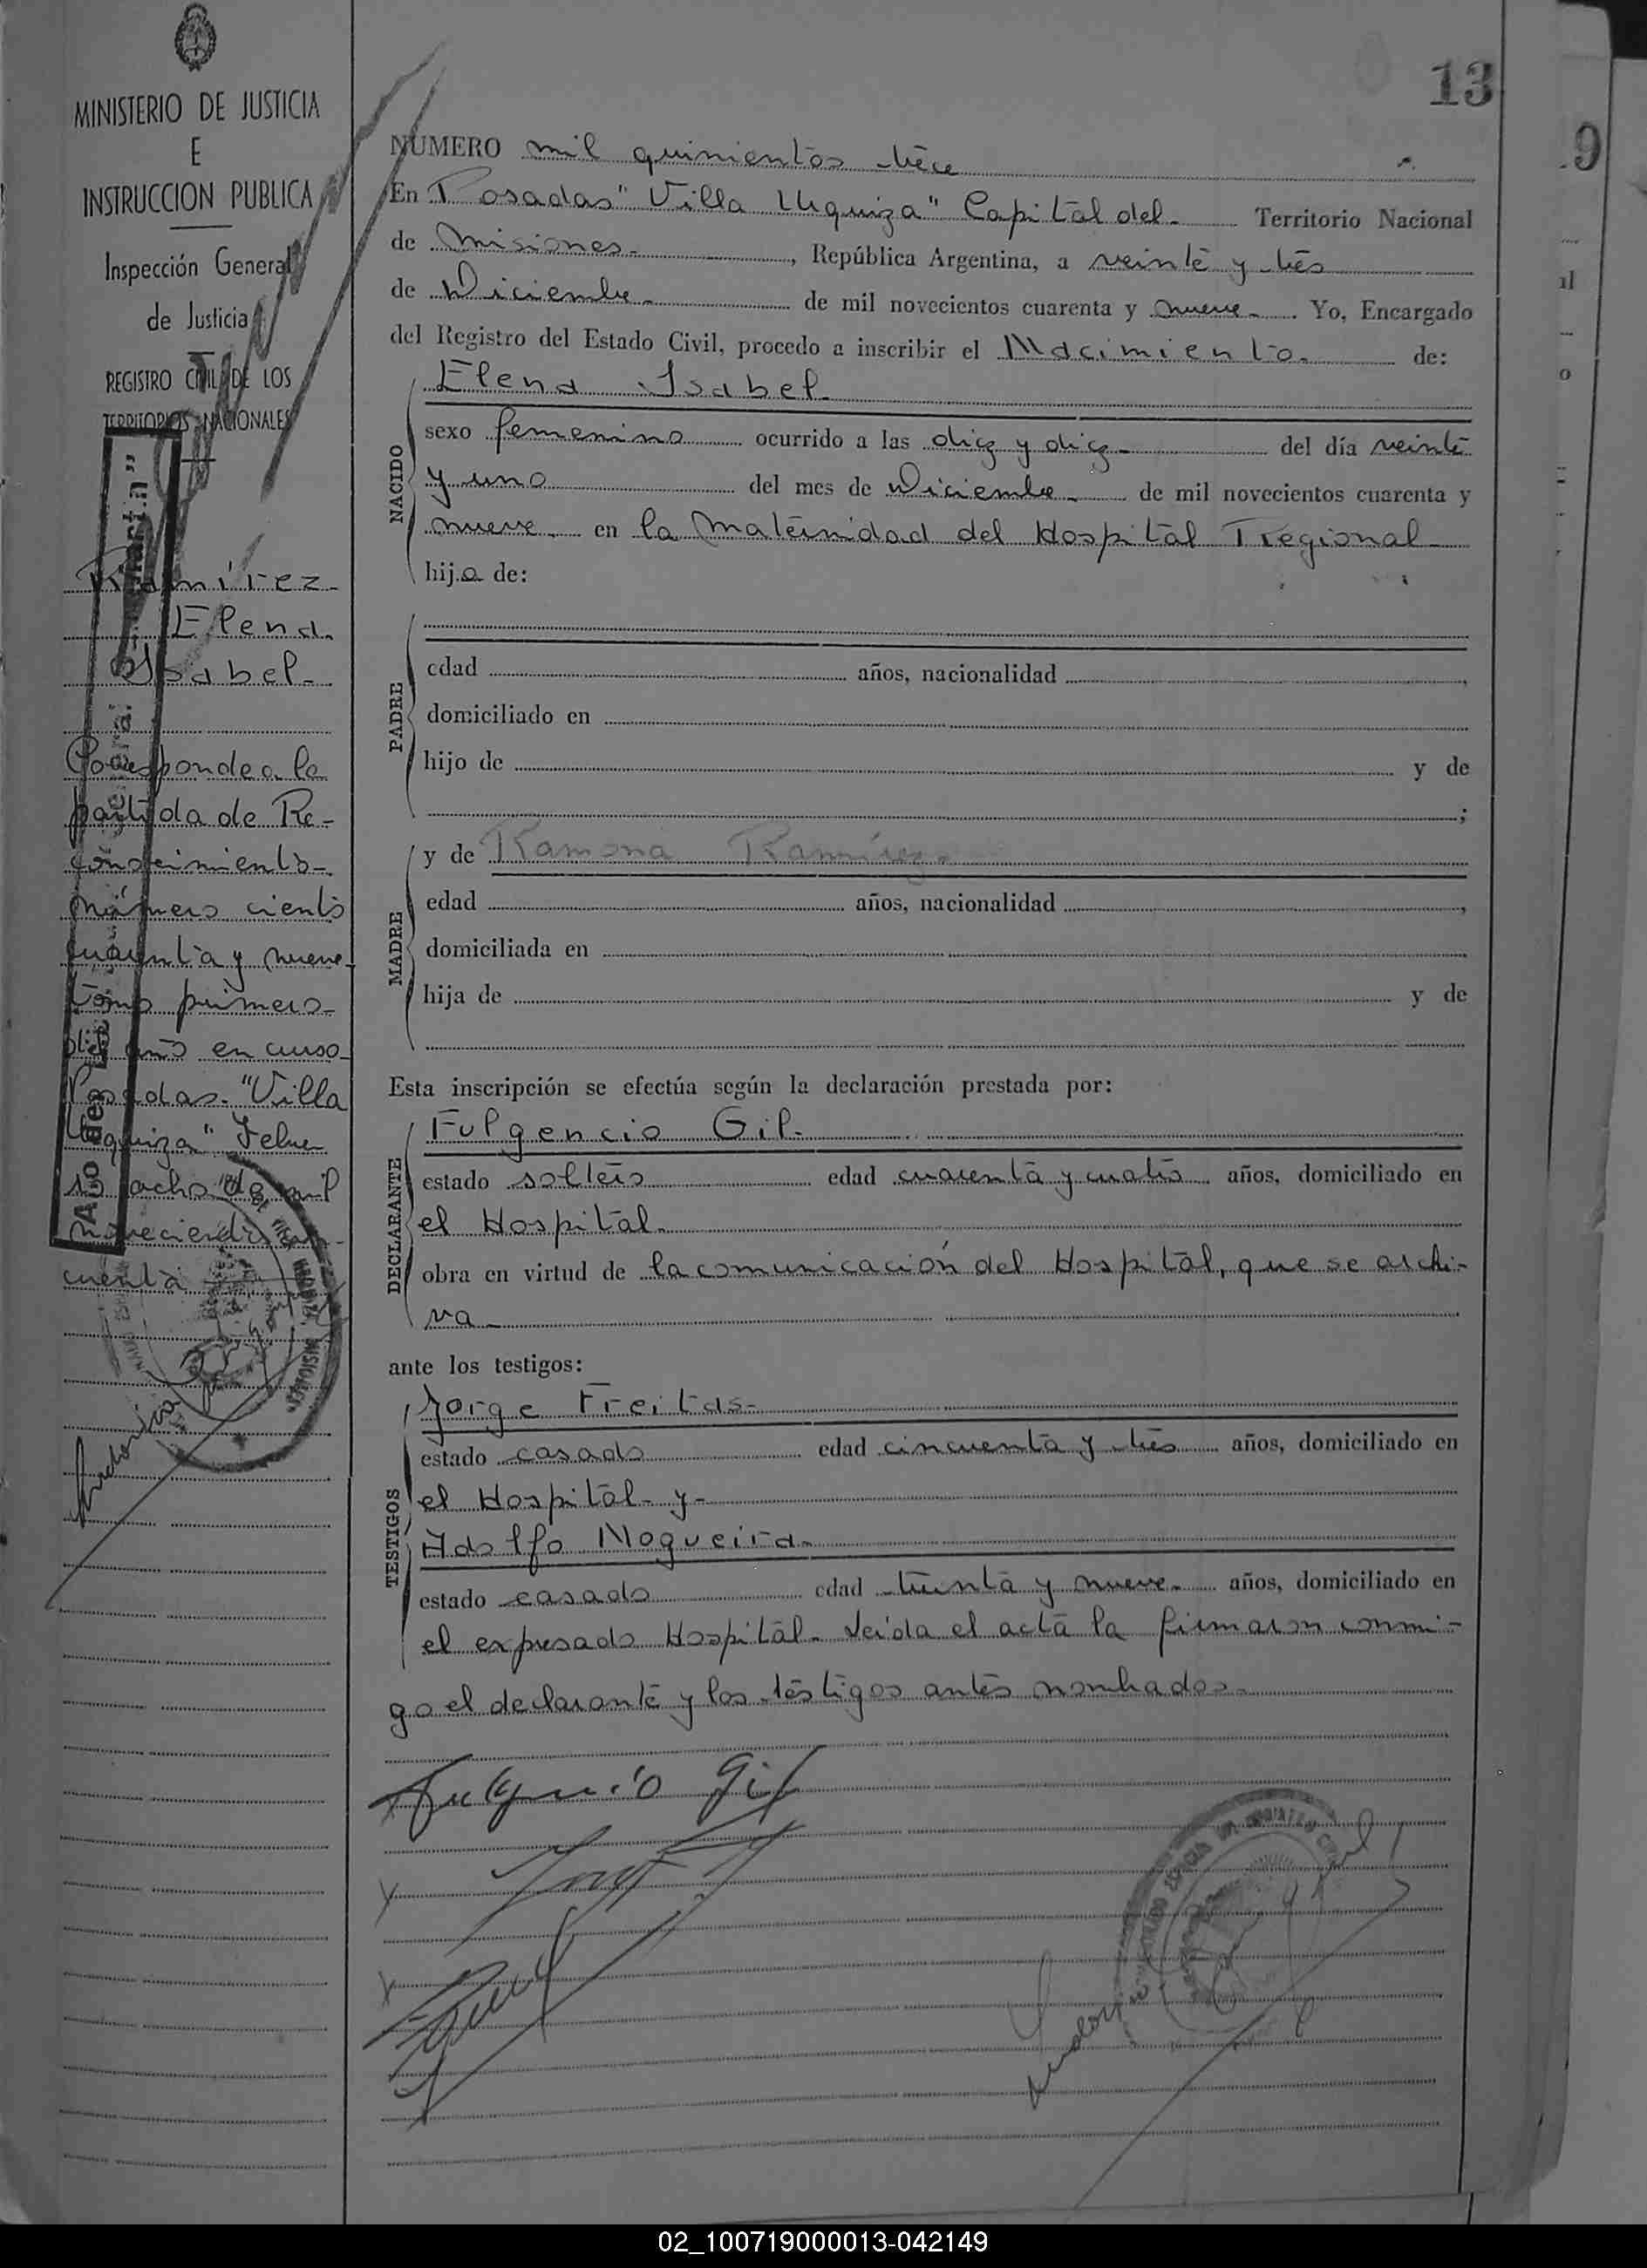 MINISTERIO DE JUSTICIA
E
INSTRUCCION PUBLICA
Inspección General
de Justicia
REGISTRO CIVIL DE LOS
TERRITORIOS NACIONALES
Ramírez
Elena
Isabel.
Corresponde a la
partida de Re-
conocimiento
número ciento
cuarenta y nueve
tomo primero
del año en curso
Posadas. "Villa
Urquiza" Febre-
ro ocho de mil
novecientos cin-
cuenta
13
9
NUMERO mil quinientos trece
En Posadas "Villa Urquiza" Capital del Territorio Nacional
de Misiones, República Argentina, a veinte y tres
de Diciembre de mil novecientos cuarenta y nueve. Yo, Encargado
del Registro del Estado Civil, procedo a inscribir el Nacimiento de:
NACIDO
Elena Isabel.
sexo femenino ocurrido a las diez y diez del día veinte
y uno del mes de Diciembre de mil novecientos cuarenta y
nueve en la Maternidad del Hospital Regional
hija de:
PADRE
edad años, nacionalidad ,
domiciliado en
hijo de y de
;
MADRE
y de Ramona Ramírez.
edad años, nacionalidad ,
domiciliada en
hija de y de
Esta inscripción se efectúa según la declaración prestada por:
DECLARANTE
Fulgencio Gil.
estado soltero edad cuarenta y cuatro años, domiciliado en
el Hospital.
obra en virtud de la comunicación del Hospital, que se archi-
va
ante los testigos:
TESTIGOS
Jorge Freitas
estado casado edad cincuenta y tres años, domiciliado en
el Hospital y
Adolfo Nogueira
estado casado edad treinta y nueve años, domiciliado en
el expresado Hospital. Leída el acta la firmaron conmi-
go el declarante y los testigos antes nombrados.
Fulgencio Gil
02_100719000013-042149